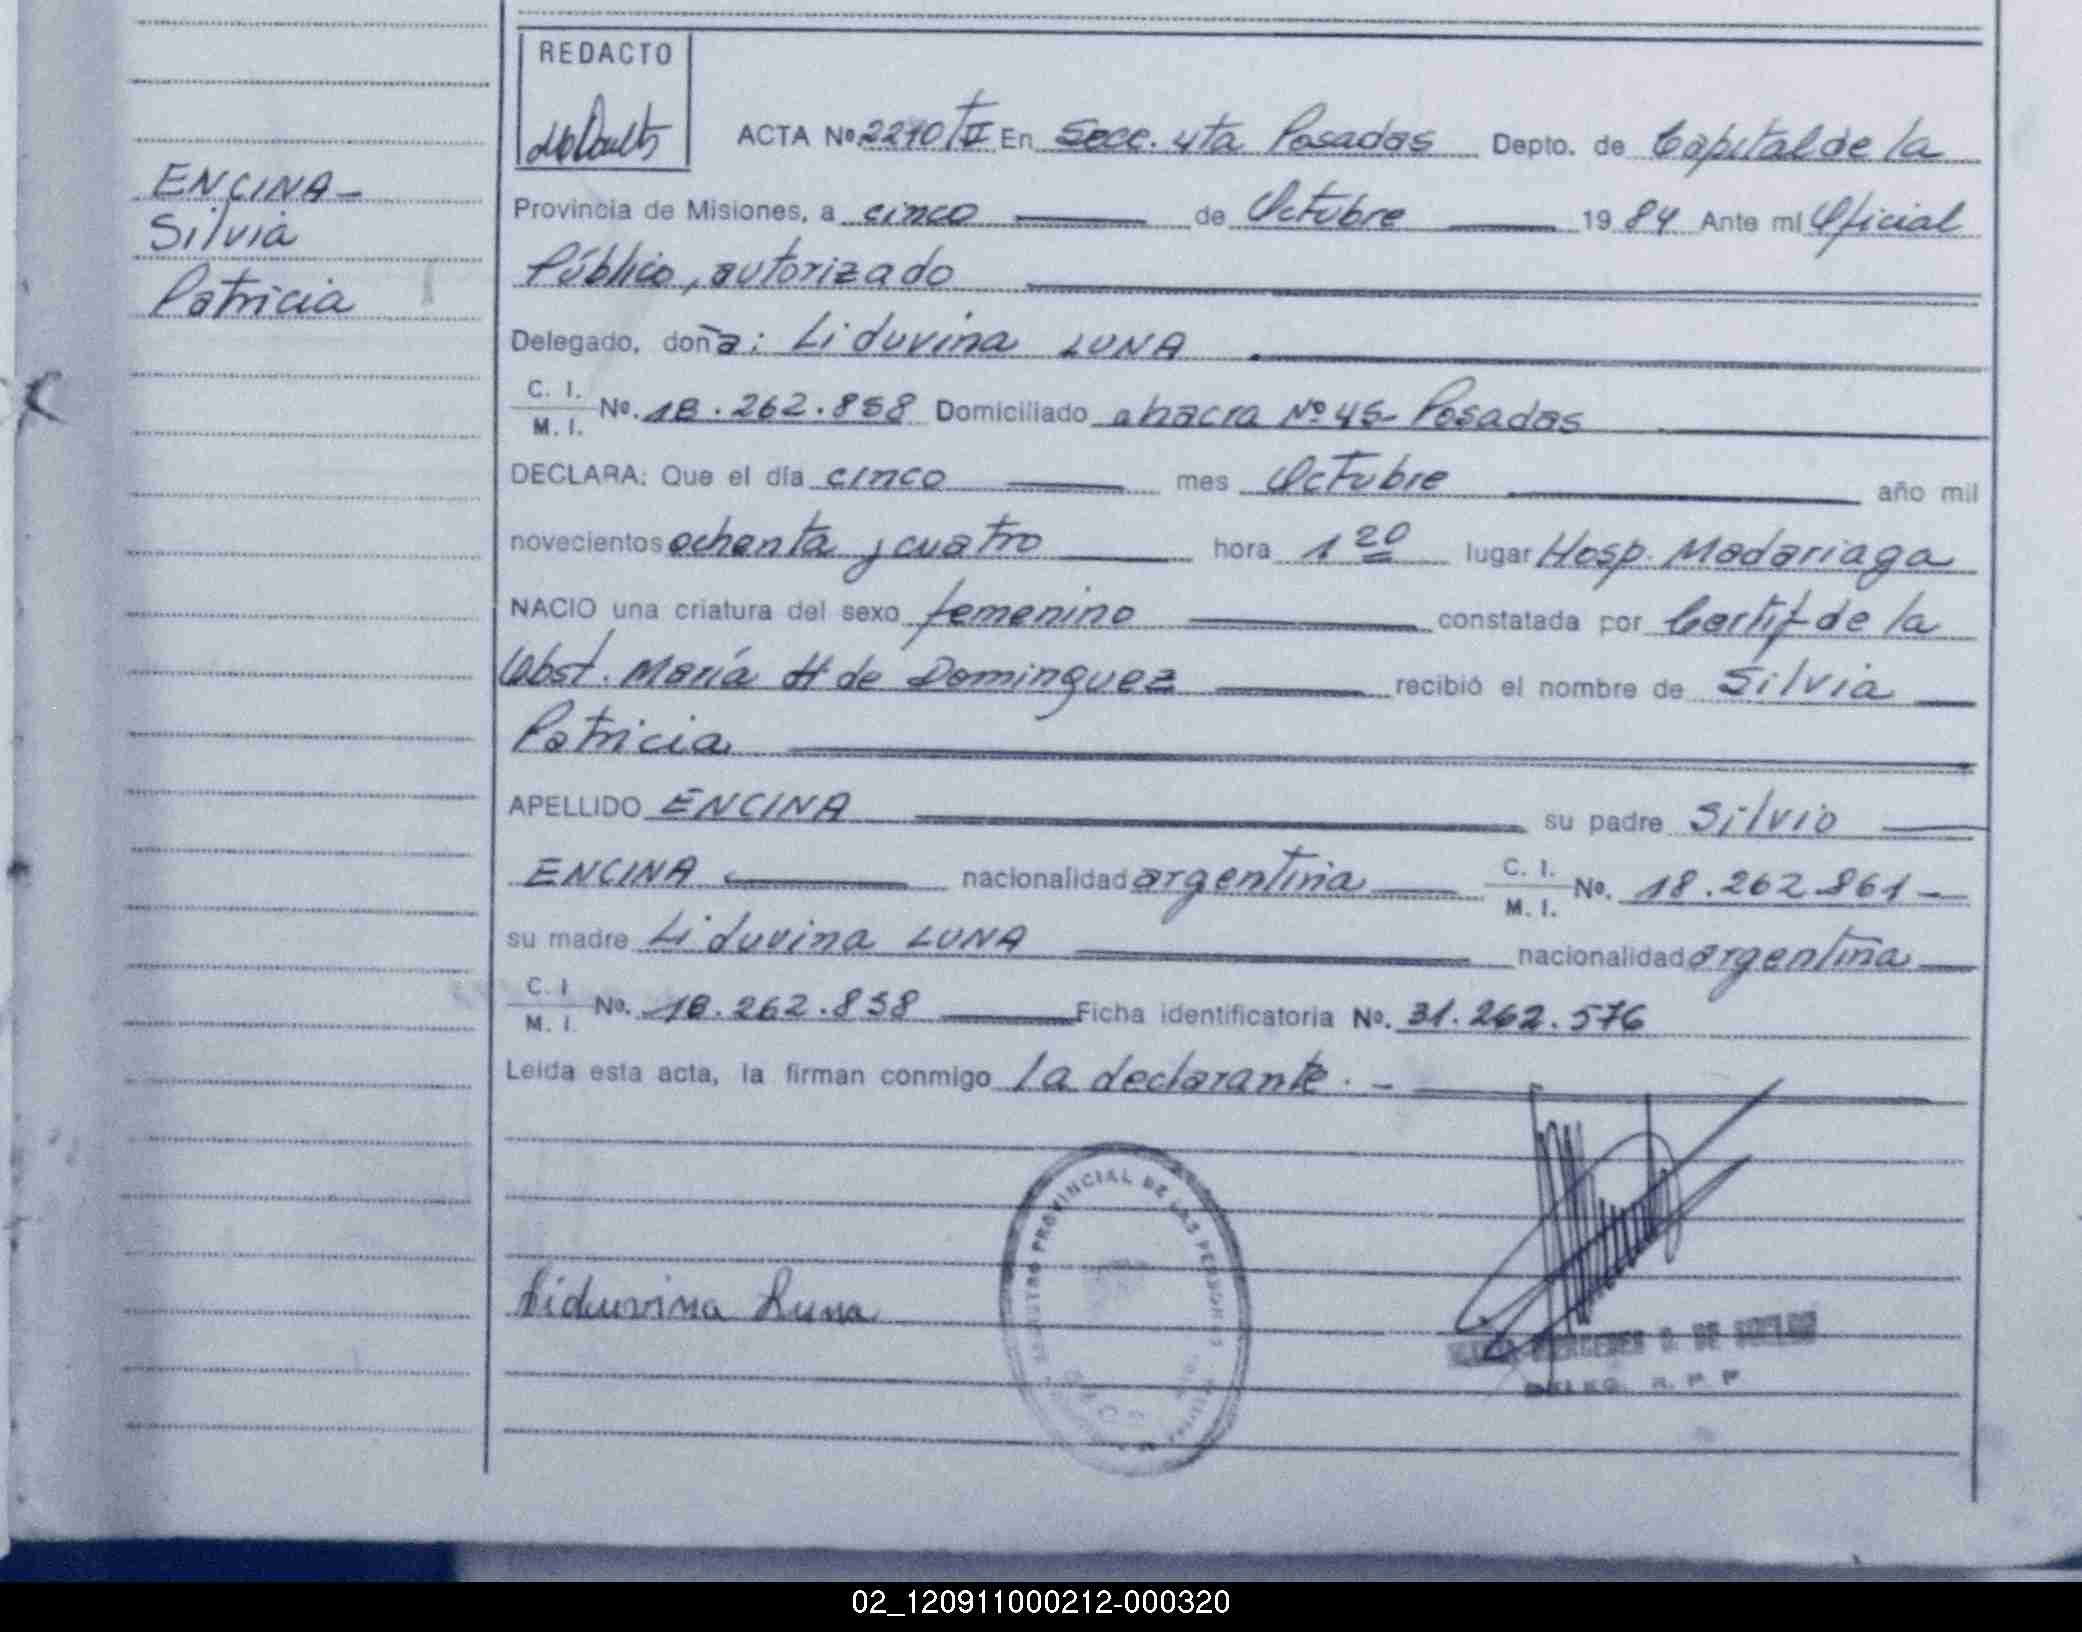 REDACTO
ACTA Nº 2270 TII En Secc. 4ta Posadas Depto. de Capital de la
ENCINA-
Silvia
Patricia
Provincia de Misiones, a cinco de Octubre 1984 Ante mí Oficial
Público, autorizado
Delegado, doña: Liduvina LUNA
C. I.
M. I. No. 18.262.858 Domiciliado chacra Nº 45- Posadas
DECLARA: Que el día cinco mes Octubre año mil
novecientos ochenta y cuatro hora 1 20 lugar Hosp. Madariaga
NACIO una criatura del sexo femenino constatada por Certif de la
Obst. María H de Dominguez recibió el nombre de Silvia
Patricia
APELLIDO ENCINA su padre Silvio
ENCINA nacionalidad argentina C. I.
M. I. No. 18.262.861-
su madre Liduvina LUNA nacionalidad argentina
C. I
M. I. No. 18.262.858 Ficha identificatoria No. 31.262.576
Leida esta acta, la firman conmigo la declarante. -
REGISTRO PROVINCIAL DE LAS PERSONAS
Liduvina Luna
DE
DELEG. R. P. P
02_120911000212-000320